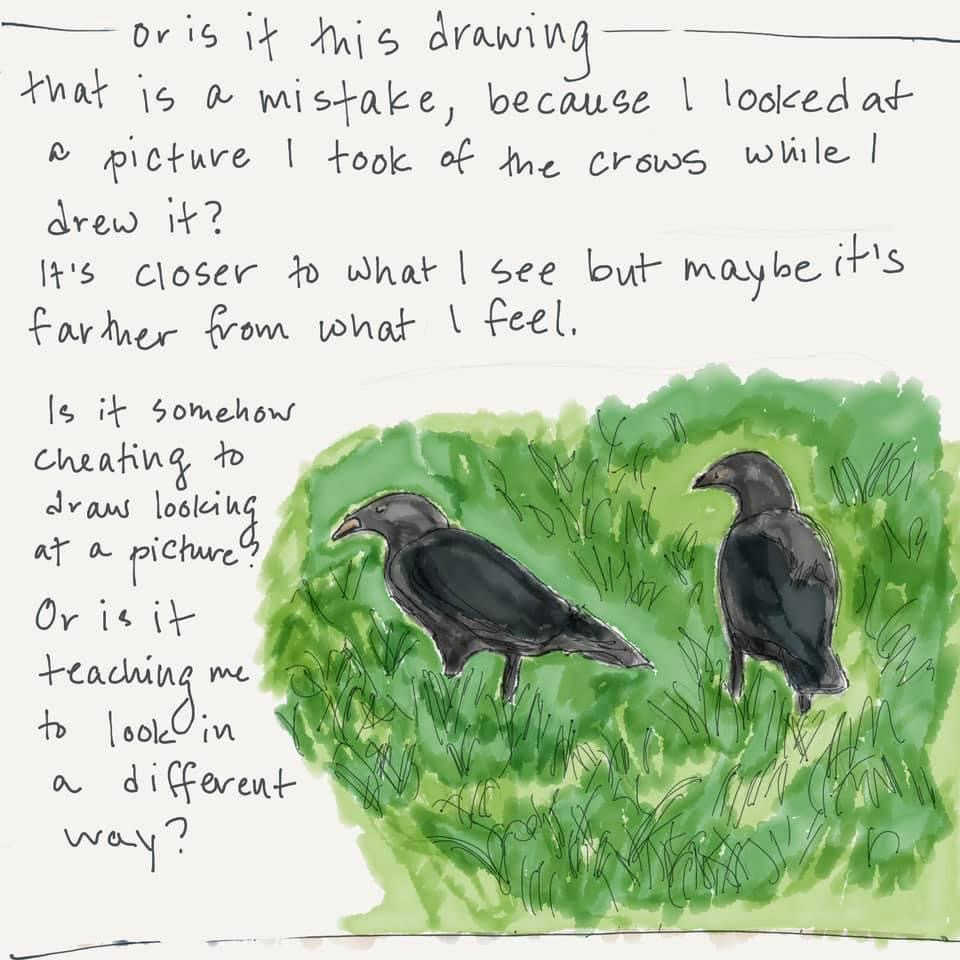 or is it this drawing
that is a mistake, because I looked at
a picture I took of the crows while I
drew it?
It's closer to what I see but maybe it's
farther from what I feel.
Is it somehow
cheating to
draw looking
at a picture?
Or is it
teaching me
to look in
a different
way?